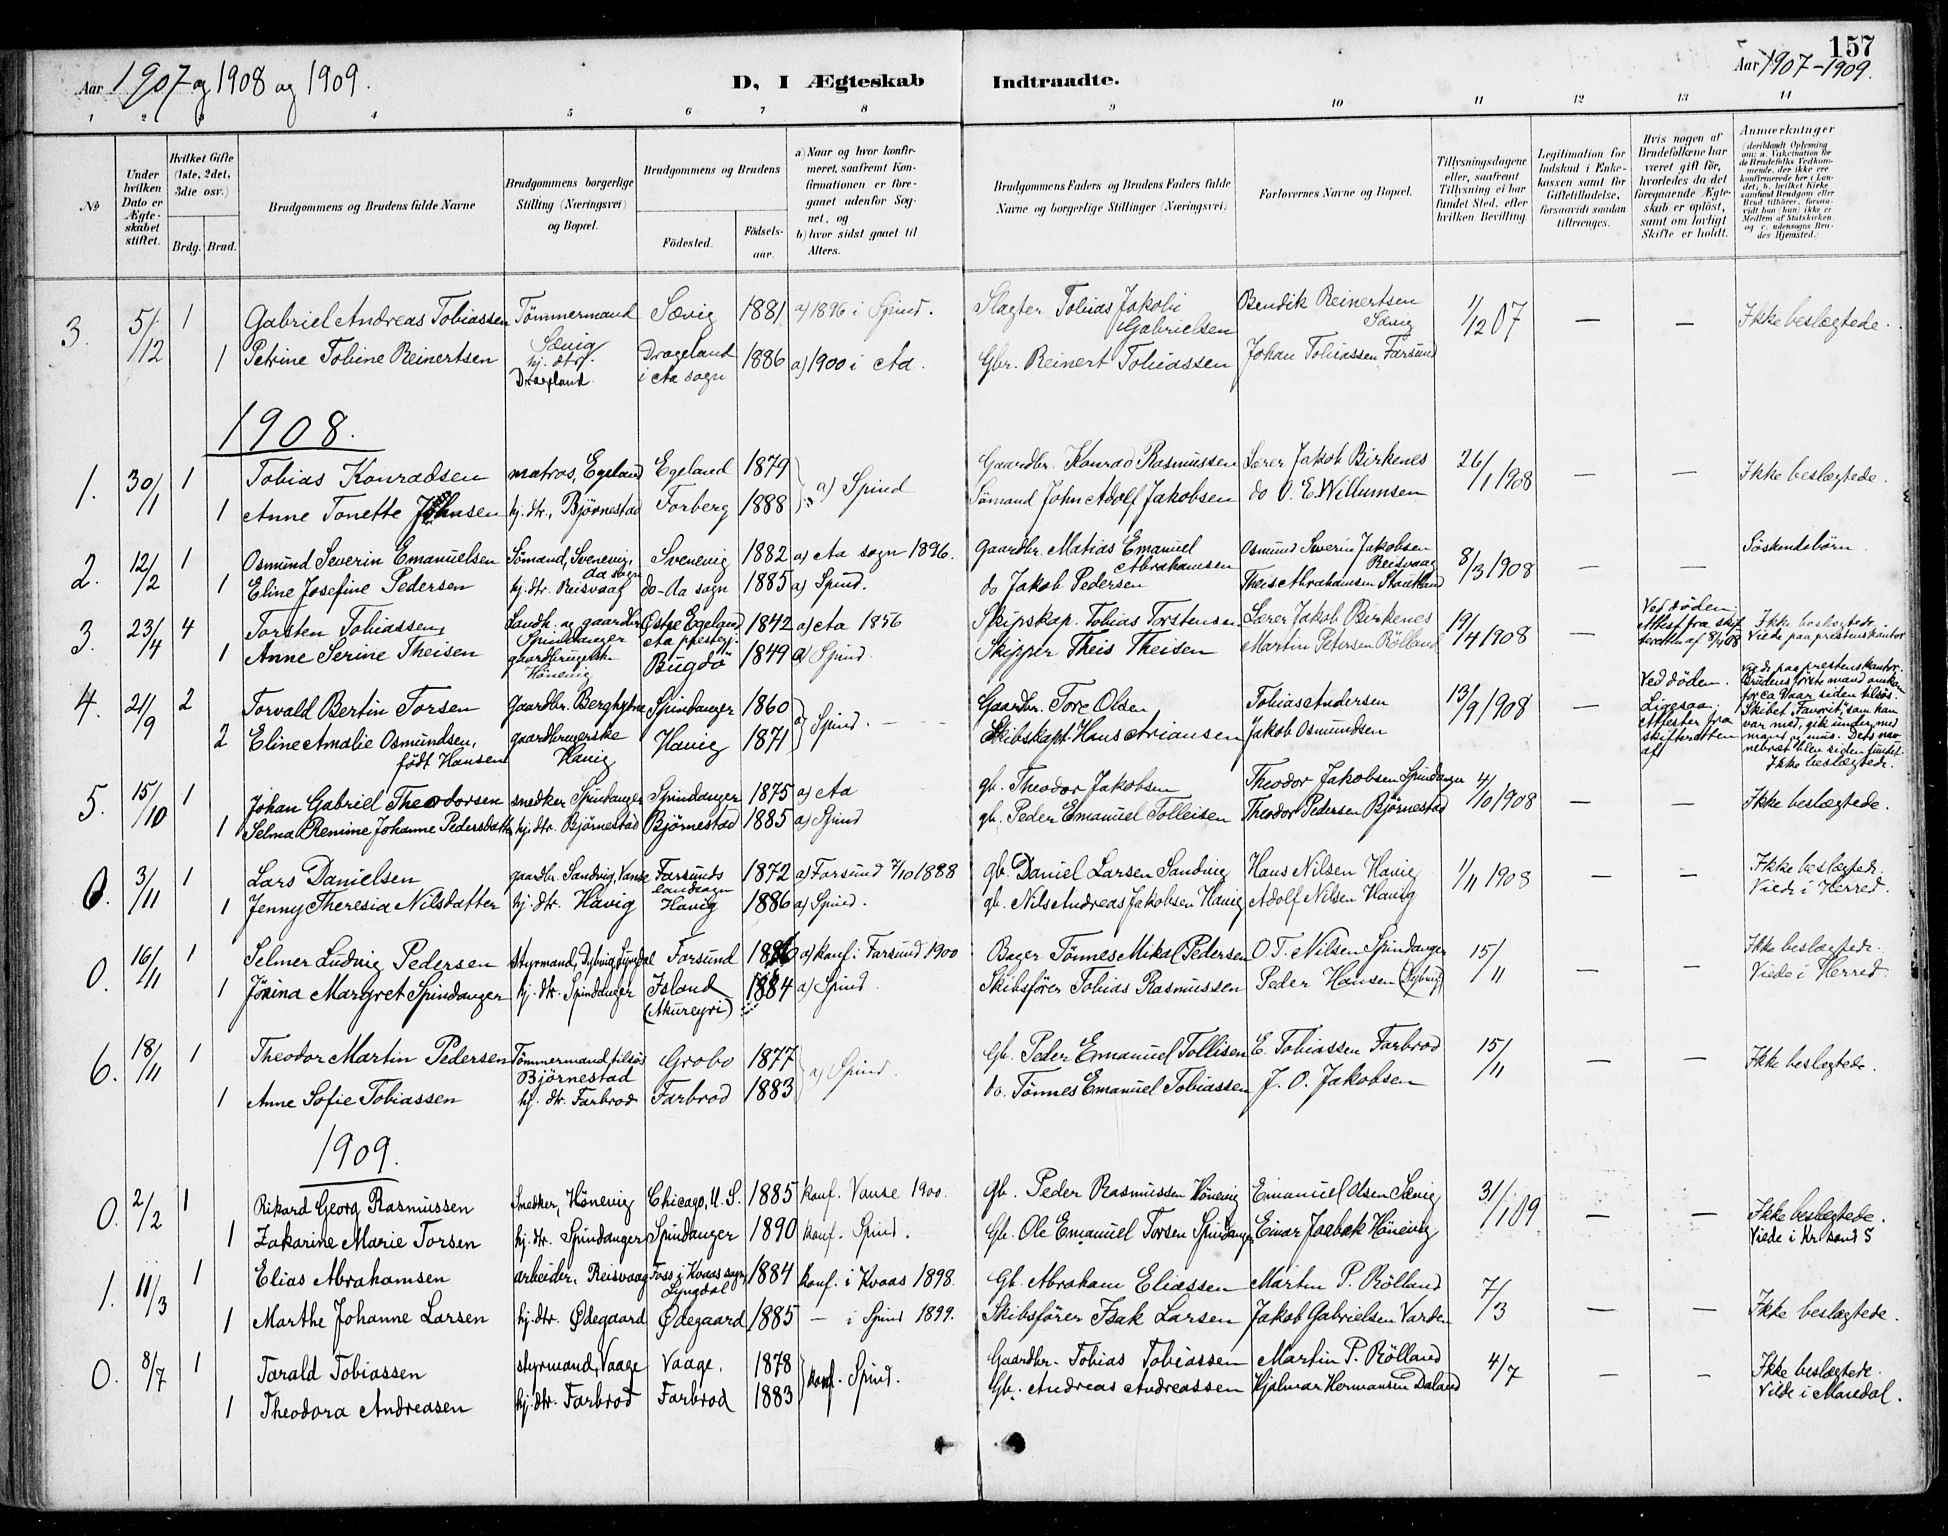 157
Aar 1907 og 1908 og 1909.
D, I Ægteskab Indtraadte.
Aar 1907-1909.
1 2 3 4 5 6 7 8 9 10 11 12 13 14
No
Under hvilken Dato er Ægteskabet stiftet.
Hvilket Gifte (1ste, 2det, 3die osv.)
Brdg. Brud.
Brudgommens og Brudens fulde Navne
Brudgommens borgerlige Stilling (Næringsvei) og Bopæl.
Brudgommens og Brudens
Fødested.
Fødselsaar.
a) Naar og hvor konfirmeret, saafremt Konfirmationen er foregaaet udenfor Sognet, og
b) hvor sidst gaaet til Alters.
Brudgommens Faders og Brudens Faders fulde Navne og borgerlige Stillinger (Næringsvei)
Forlovernes Navne og Bopæl.
Tillysningsdagene eller, saafremt Tillysning ei har fundet Sted, efter hvilken Bevilling
Legitimation for Indskud i Enkekassen samt for Giftetilladelse, forsaavidt saadan tiltrænges.
Hvis nogen af Brudefolkene har været gift før, hvorledes da det foregaaende Ægteskab er opløst, samt om lovligt Skifte er holdt.
Anmerkninger (deriblandt Oplysning om: a. Vakcination for de Brudefolks Vedkommende, der ikke ere konfirmerede her i Landet; b. hvilket Kirkesamfund Brudgom eller Brud tilhører, forsaavidt han (hun) ikke er Medlem af Statskirken, og c. udensogns Brudes Hjemsted.)
3. 5/12 1 Gabriel Andreas Tobiassen Tömmermand Sævig Sævig 1881 a) 1896 i Spind. Slagter Tobias Jakobi Gabrielsen Bendik Reinertsen Sævig 1/12 07 — — Ikke beslægtede.
1 Petrine Tobine Reinertsen hj. dtr. Drageland Drageland i Aa sogn 1886 a) 1900 i Aa. Gbr. Reinert Tobiassen Johan Tobiassen Farsund
1908.
1. 30/1 1 Tobias Konradsen matros, Egeland Egeland 1879 a) Spind Gaardbr. Konrad Rasmussen Lærer Jakob Birkenes 26/1 1908 — — Ikke beslægtede.
1 Anne Tonette Johnsen hj. dtr., Bjørnestad Forberg 1888 Sömand John Adolf Jakobsen do O. E. Willumsen
2. 12/2 1 Osmund Severin Emanuelsen Sömand, Svenevig, Aa sogn Svenevig 1882 a) Aa sogn 1896. Gaardbr. Matias Emanuel Abrahamsen Osmund Severin Jakobsen Reisvaag 8/3 1908 — — Söskendebörn.
1 Eline Josefine Pedersen hj. dtr. Reisvaag do - Aa sogn 1885 a) Spind. do Jakob Pedersen Theis Abrahamsen
3. 23/4 4 Torsten Tobiassen, Landh. og gaardbr. Spindanger Östre Egeland Aa prestegj. 1842 a) Aa 1856 Skipskap. Tobias Torstensen Lærer Jakob Birkenes 19/4 1908 — Ved döden. Attest fra skifteretten af 8/4 08 Ikke beslægtede. Viede paa prestens kontor
1 Anne Serine Theisen gaardbrugerske Hönevig Bugdö 1849 a) Spind. Skipper Theis Theisen Martin Petersen Rölland
4. 21/9 2 Torvald Bertin Torsen Gaardbr. Berghytne Spindanger 1860 a) Spind. — — Gaardbr. Tore Olsen Tobias Andersen 13/9 1908 — Ved döden. Ligesaa. Attester fra skifteretten af Viede paa prestens kontor. Brudens förste mand omkom for ca. aar siden tilsös. Skibet "Favorit", som han var med, gik under med mand og mus. Dets navnebræt blev siden fundet. Ikke beslægtede.
2 Eline Amalie Osmundsen, født Hansen gaardbrugerske Havig Havig 1871 Skibskapt. Hans Ariansen Jakob Osmundsen
5. 15/10 1 Johan Gabriel Theodorsen snedker Spindanger Spindanger 1875 a) Aa gb. Theodor Jakobsen Theodor Jakobsen Spindanger 4/10 1908 — — Ikke beslægtede.
1 Selma Remine Johanne Pedersdatter hj. dtr. Bjørnestad Bjørnestad 1885 a) Spind gb. Peder Emanuel Tolleisen Theodor Pedersen Bjørnestad
0. 3/11 1 Lars Danielsen gaardbr. Sandvig, Vanse Farsunds landsogn 1872 a) Farsund 7/10 1888 gb. Daniel Larsen Sandvig Hans Nilsen Havig 1/11 1908 — — Ikke beslægtede. Viede i Herred.
1 Jenny Theresia Nilsdatter hj. dtr. Havig Havig 1886 a) Spind. gb. Nils Andreas Jakobsen Havig Adolf Nilsen Havig
0. 16/11 1 Selmer Ludvig Pedersen styrmand, Dybvig, Lyngdal Farsund a) konf. i Farsund 1900 Bager Tönnes Mikal Pedersen O. T. Nilsen Spindanger 15/11 — — Ikke beslægtede. Viede i Herred.
1 Jörina Margret Spindanger hj. dtr. Spindanger Island (Akureyri) 1884 a) Spind Skibsfører Tobias Rasmussen Peder Hansen (Dybvig)
6. 18/11 1 Theodor Martin Pedersen Tömmermand tilsös Bjørnestad Grobo 1877 a) Spind. Gb. Peder Emanuel Tollisen E. Tobiassen Farbrod 15/11 — — Ikke beslægtede.
1 Anne Sofie Tobiassen hj. dtr. Farbrod Farbrod 1883 do. Tönnes Emanuel Tobiassen J. O. Jakobsen
1909.
0. 2/2 1 Rikard Georg Rasmussen Snedker, Hönevig Chicago, U. S. 1885 konf. Vanse 1900. gb. Peder Rasmussen Hönevig Emanuel Olsen Sævig 31/1 09 — — Ikke beslægtede. Viede i Kr.sand S
1 Zakarine Marie Torsen hj. dtr. Spindanger Spindanger 1890 konf. Spind. Gb. Ole Emanuel Torsen Spindanger Einar Jaabæk Hönevig
1. 11/3 1 Elias Abrahamsen arbeider, Reisvaag Foss i Kvaas sogn, Lyngdal 1884 konf. i Kvaas 1898. Gb. Abraham Eliassen Martin P. Rölland 7/3 — — Ikke beslægtede.
1 Marthe Johanne Larsen hj. dtr. Ødegaard Ødegaard 1885 — i Spind 1899. Skibsfører Isak Larsen Jakob Gabrielsen Varden
0. 8/7 1 Tarald Tobiassen styrmand, Vaage Vaage. 1878 konf. Spind. Gaardbr. Tobias Tobiassen Martin P. Rölland 4/7 — — Ikke beslægtede. Viede i Mandal.
1 Theodora Andreasen hj. dtr. Farbrod Farbrod 1883 Gb. Andreas Andreassen Hjalmar Hermansen Daland